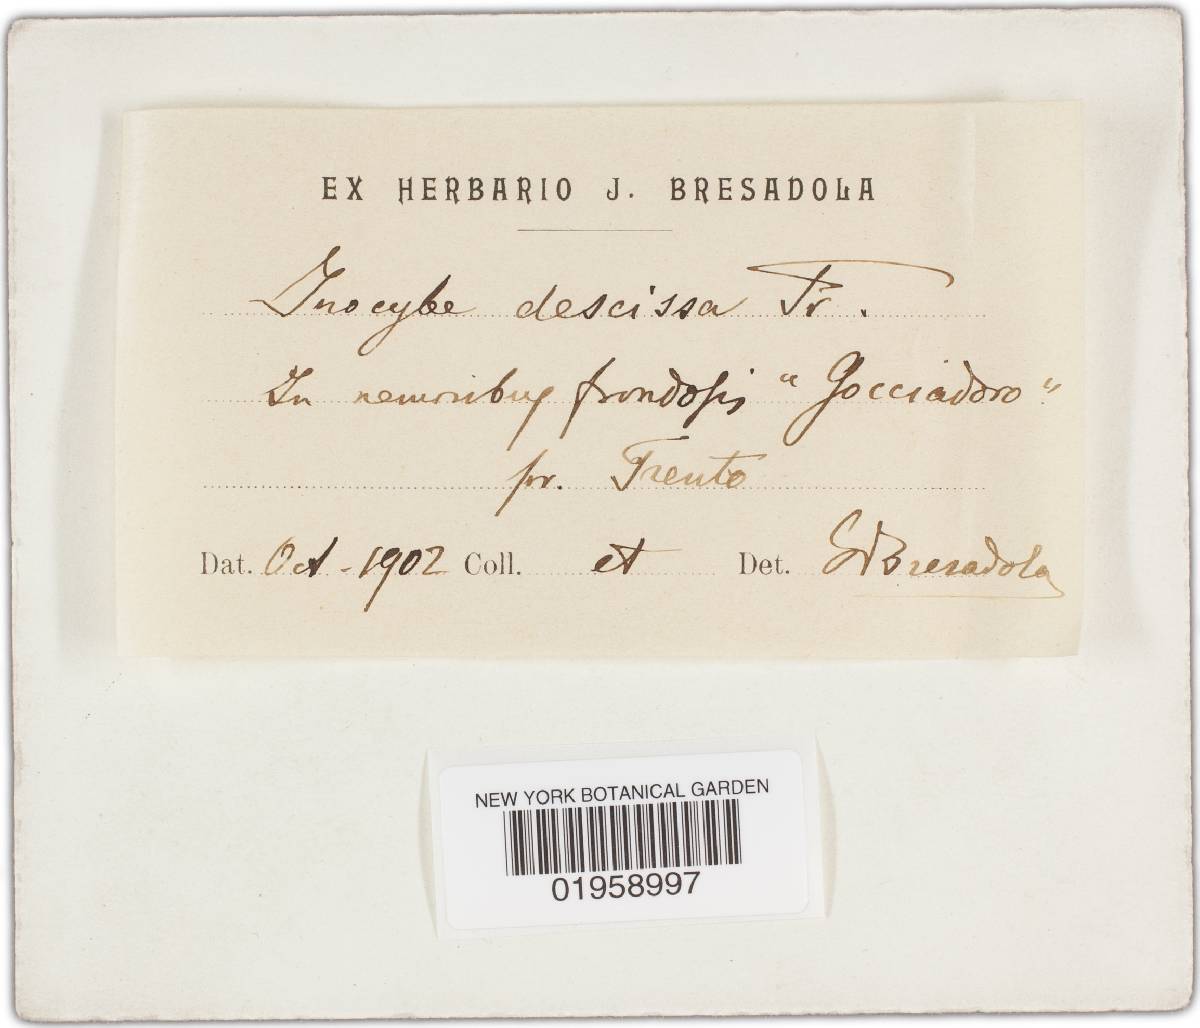 EX HERBARIO J. BRESADOLA
Inocybe descissa Fr.
In nemoribus frondosis "Gocciadoro"
pr. Trento
Dat. Oct - 1902 Coll. et Det. GBresadola
NEW YORK BOTANICAL GARDEN
01958997